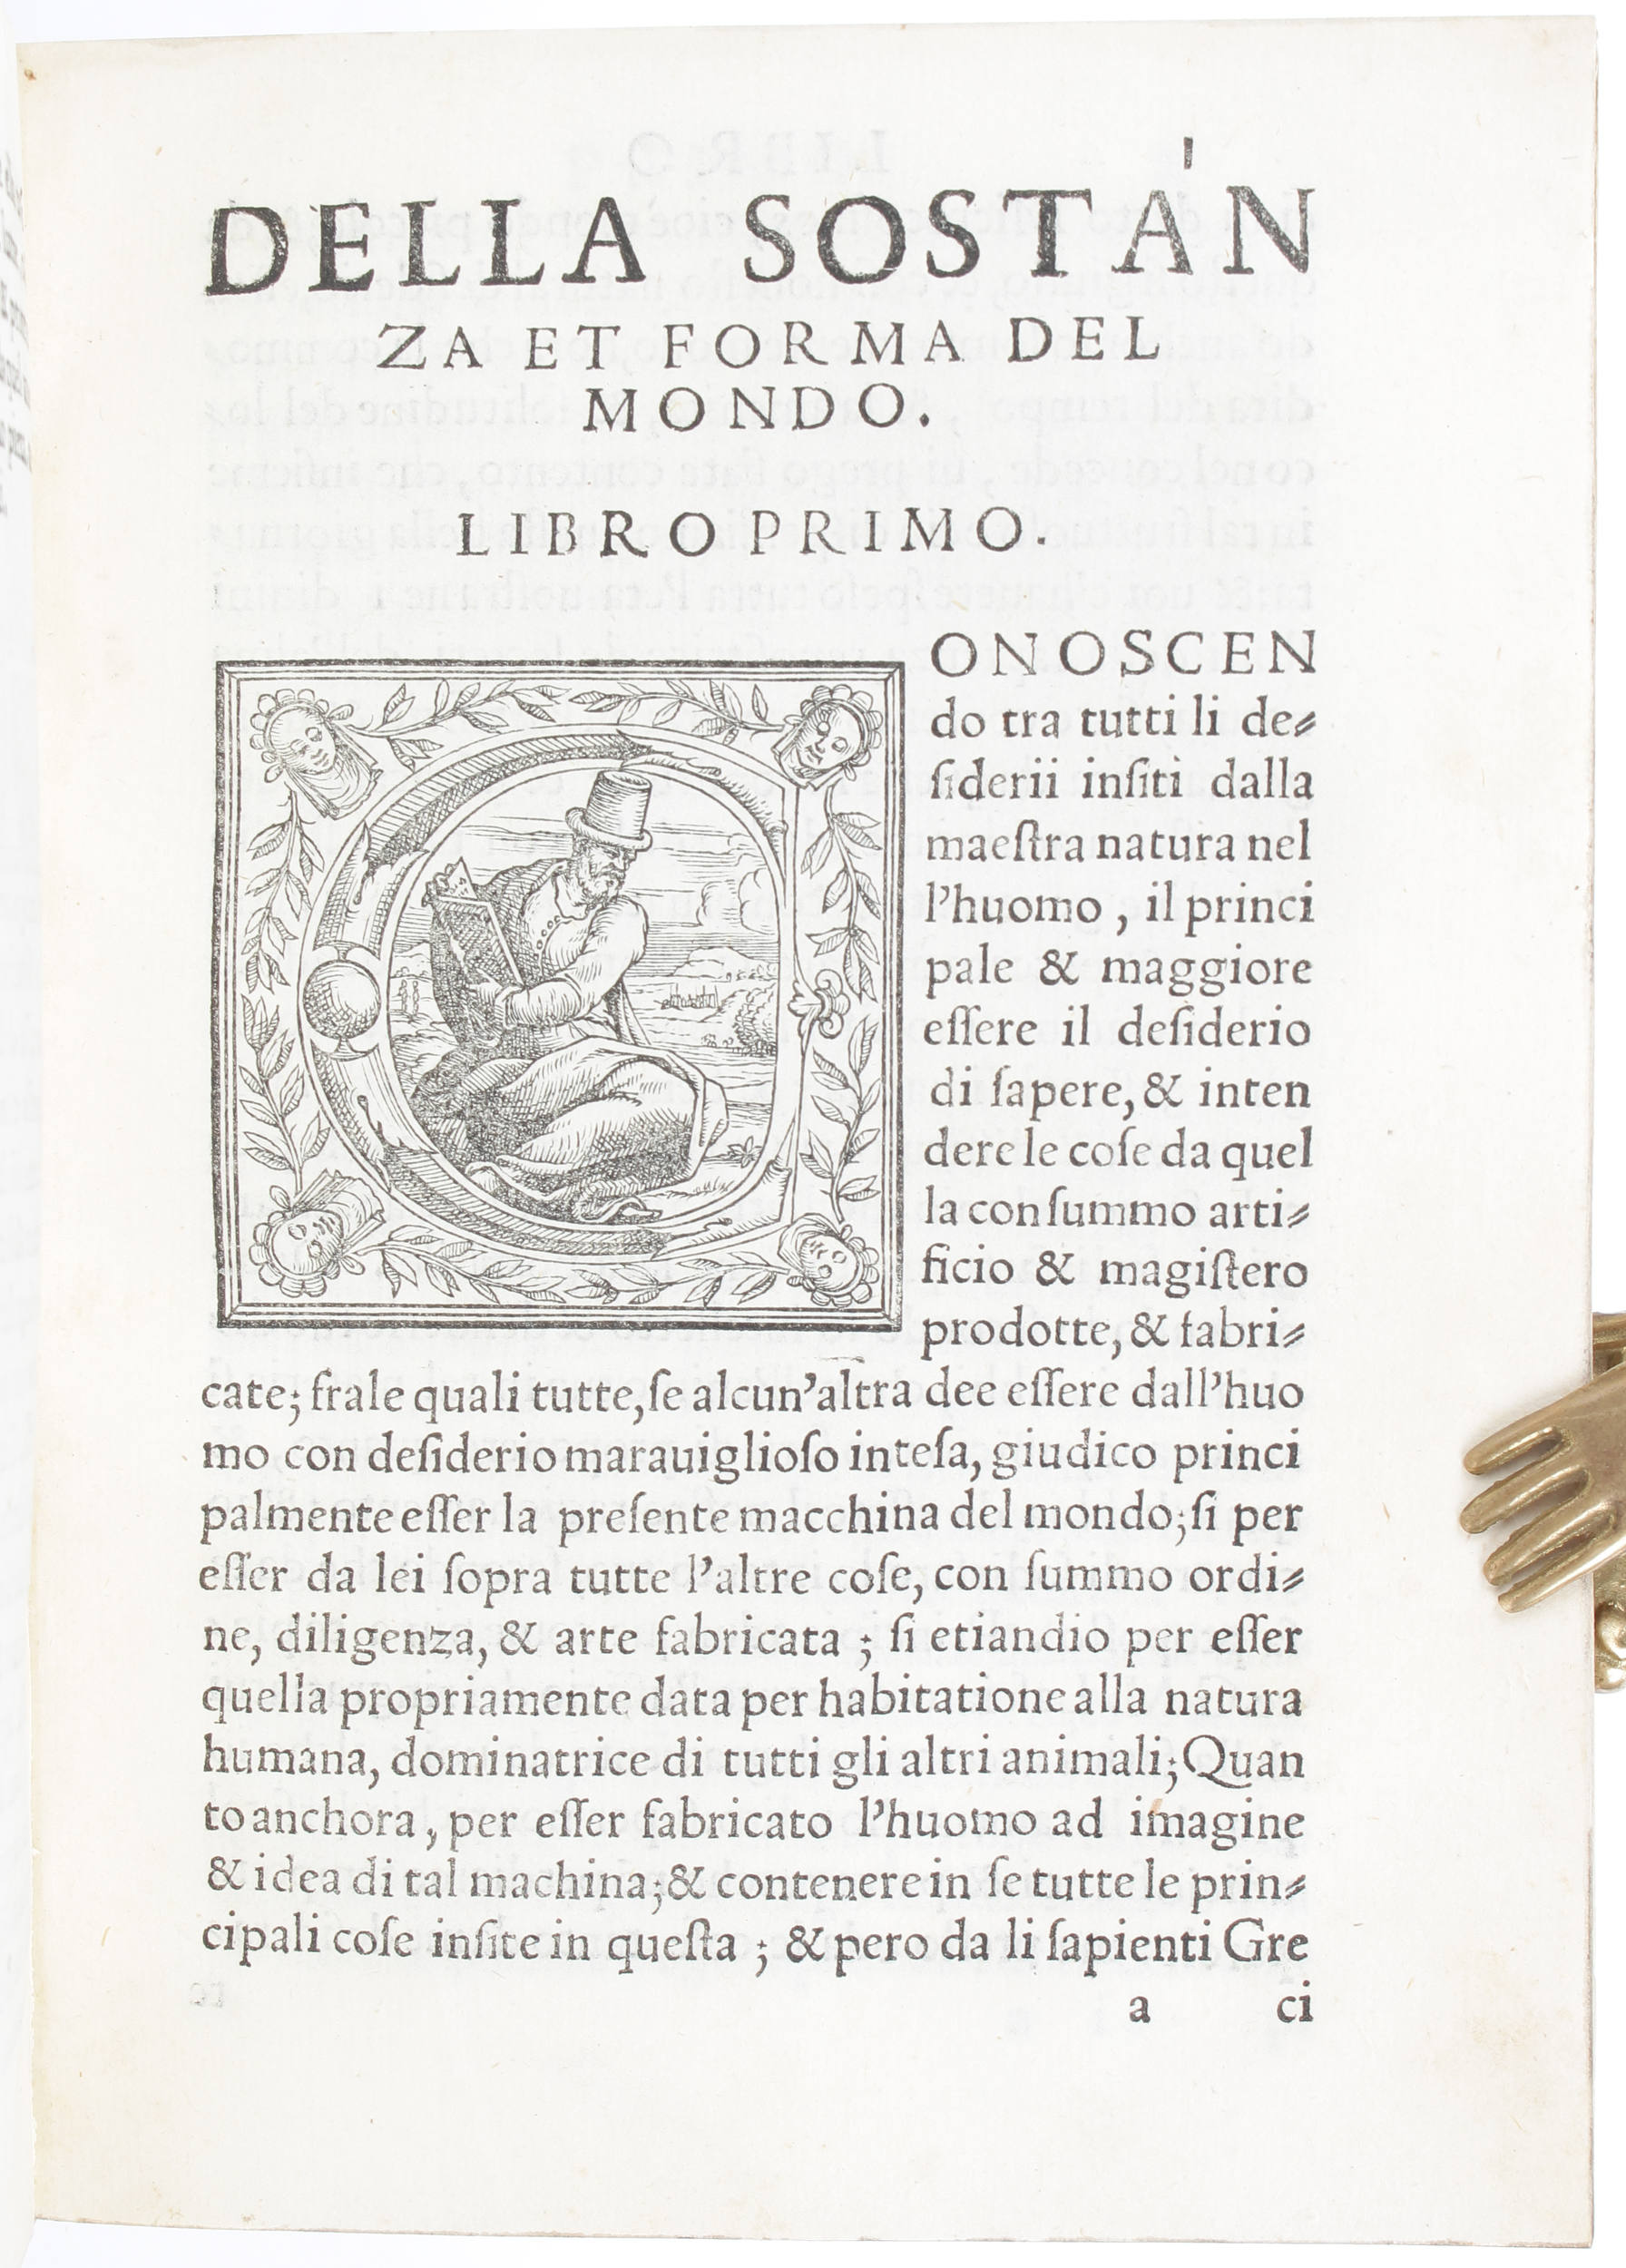 I
DELLA SOSTAN
ZA ET FORMA DEL
MONDO.
LIBRO PRIMO.
CONOSCEN
do tra tutti li de⸗
ſiderii inſiti dalla
maeſtra natura nel
l'huomo, il princi
pale & maggiore
eſſere il deſiderio
di ſapere, & inten
dere le coſe da quel
la con ſummo arti⸗
ficio & magiſtero
prodotte, & fabri⸗
cate; fra le quali tutte, ſe alcun'altra dee eſſere dall'huo
mo con deſiderio marauiglioſo inteſa, giudico princi
palmente eſſer la preſente macchina del mondo; ſi per
eſſer da lei ſopra tutte l'altre coſe, con ſummo ordi⸗
ne, diligenza, & arte fabricata; ſi etiandio per eſſer
quella propriamente data per habitatione alla natura
humana, dominatrice di tutti gli altri animali; Quan
to anchora, per eſſer fabricato l'huomo ad imagine
& idea di tal machina; & contenere in ſe tutte le prin⸗
cipali coſe inſite in queſta; & pero da li ſapienti Gre
a ci